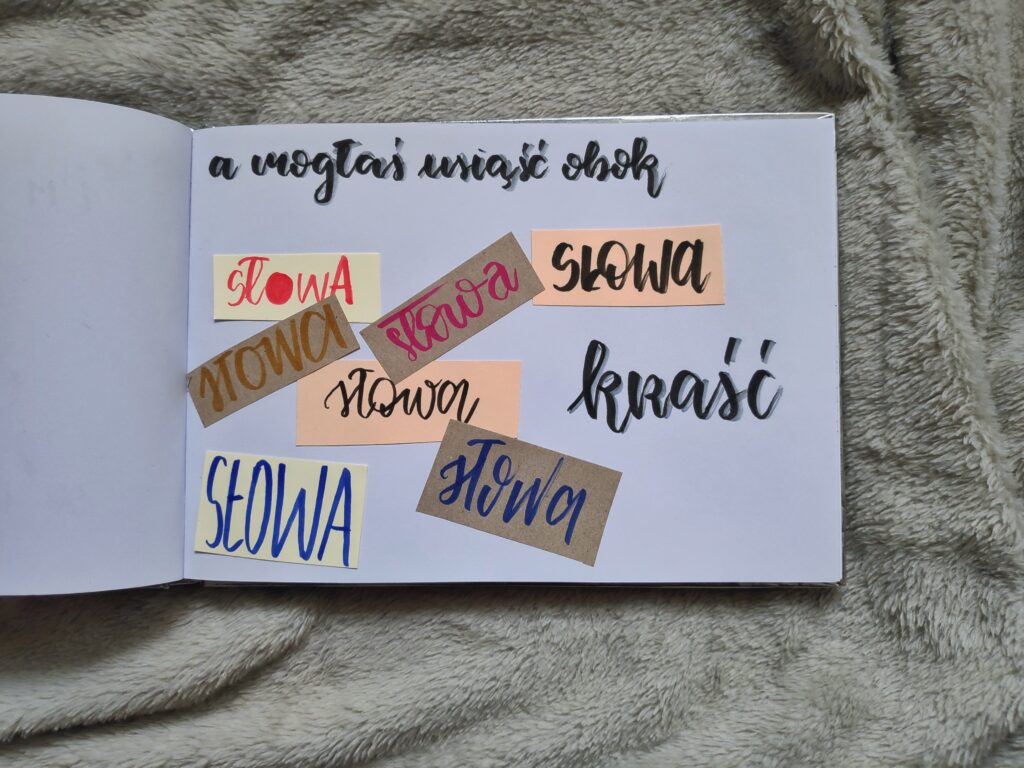 a mogłaś usiąść obok
słowA
słowa
SŁOWA
słowa
słowa
kraść
SŁOWA
słowa